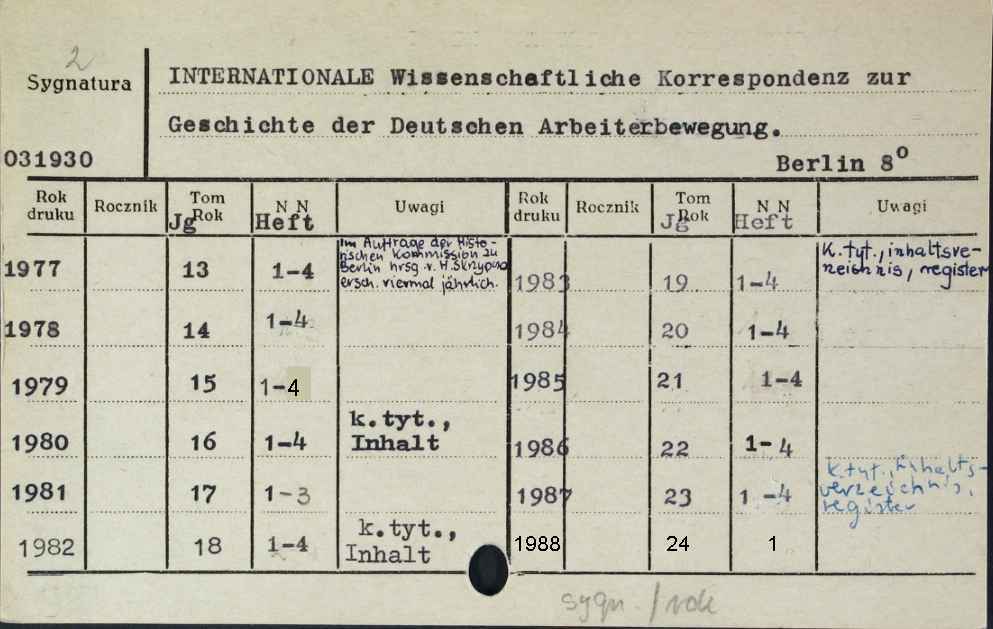 2
Sygnatura
INTERNATIONALE Wissenschaftliche Korrespondenz zur
Geschichte der Deutschen Arbeiterbewegung.
031930
Berlin 8º
Rok druku Rocznik Tom Rok N N Uwagi Rok druku Rocznik Tom Rok N N Uwagi
Jg Heft Jg Heft
Im Auftrage der Histo-
rischen Kommission zu
Berlin hrsg. v. H. Skrzypczak
ersch. viermal jährlich.
1977 13 1-4
1983 19 1-4
K. tyt., inhaltsve-
rzeichnis, register
1978 14 1-4
1984 20 1-4
1979 15 1-4
1985 21 1-4
1980 16 1-4 k.tyt.,
Inhalt
1986 22 1-4
1981 17 1-3
1987 23 1-4
k.tyt., Inhalts-
verzeichnis,
register
1982 18 1-4 k.tyt.,
Inhalt
1988 24 1
sygn. / rok